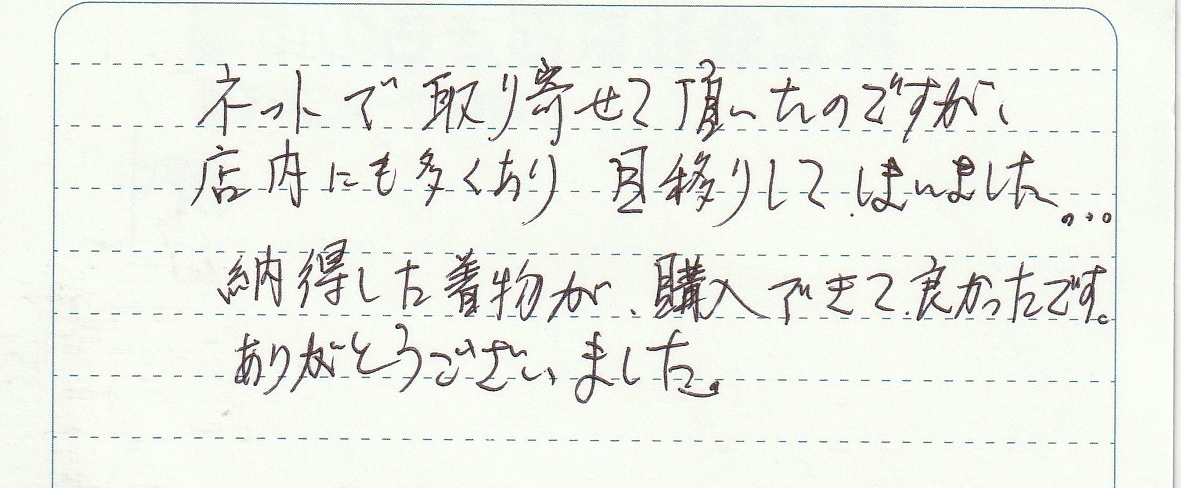 ネットで取り寄せて頂いたのですが、
店内にも多くあり 目移りしてしまいました...
納得した着物が、購入できて良かったです。
ありがとうございました。